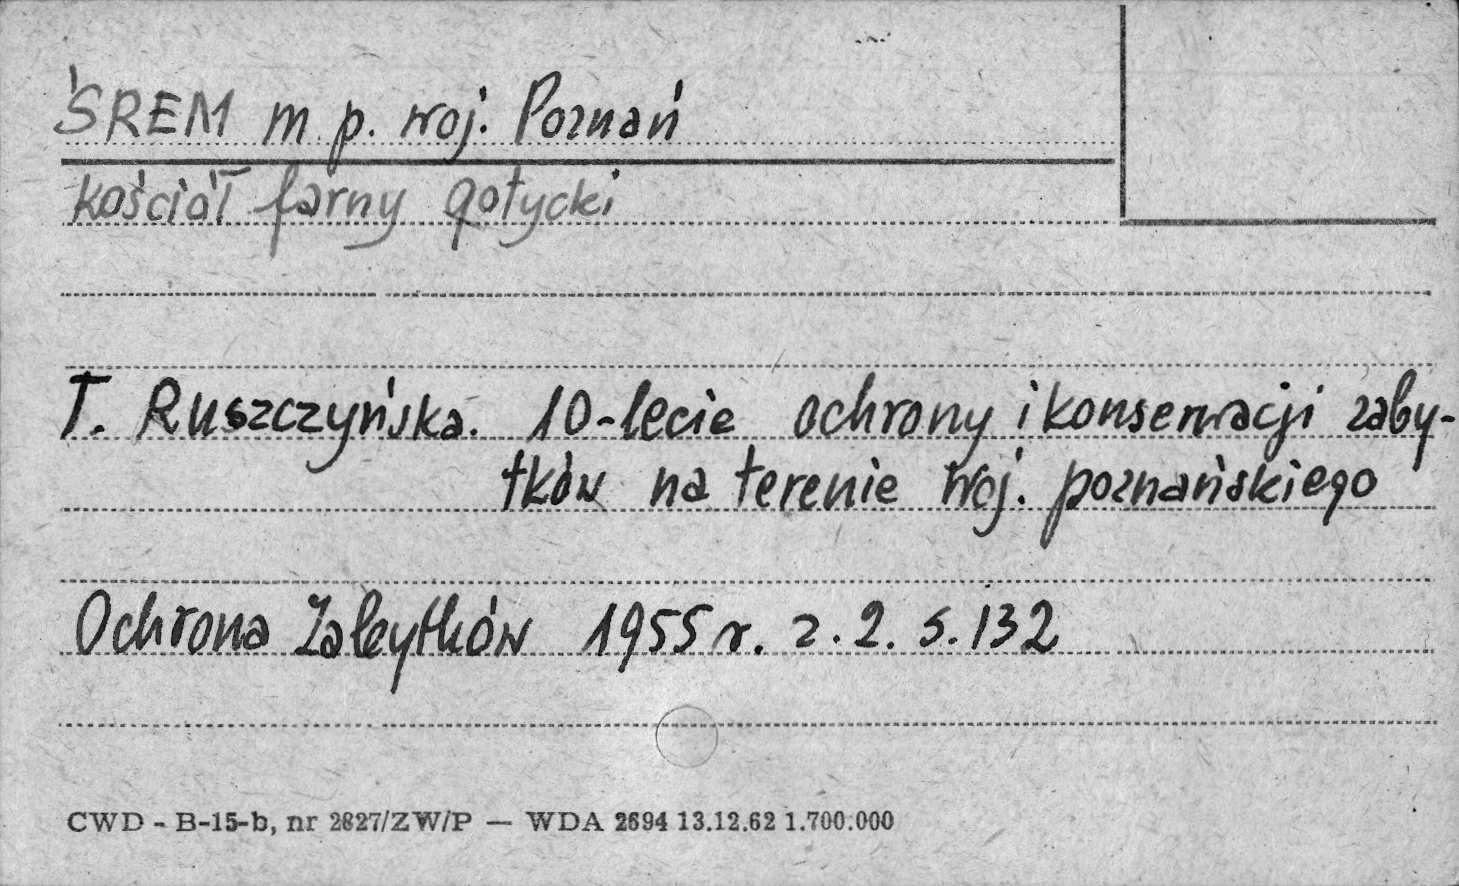 ŚREM m. p. woj. Poznań
kościół farny gotycki
T. Ruszczyńska. 10-lecie ochrony i konserwacji zaby-
tków na terenie woj. poznańskiego
Ochrona Zabytków 1955 r. z. 2. s. 132
CWD - B-15-b, nr 2827/ZW/P — WDA 2694 13.12.62 1.700.000